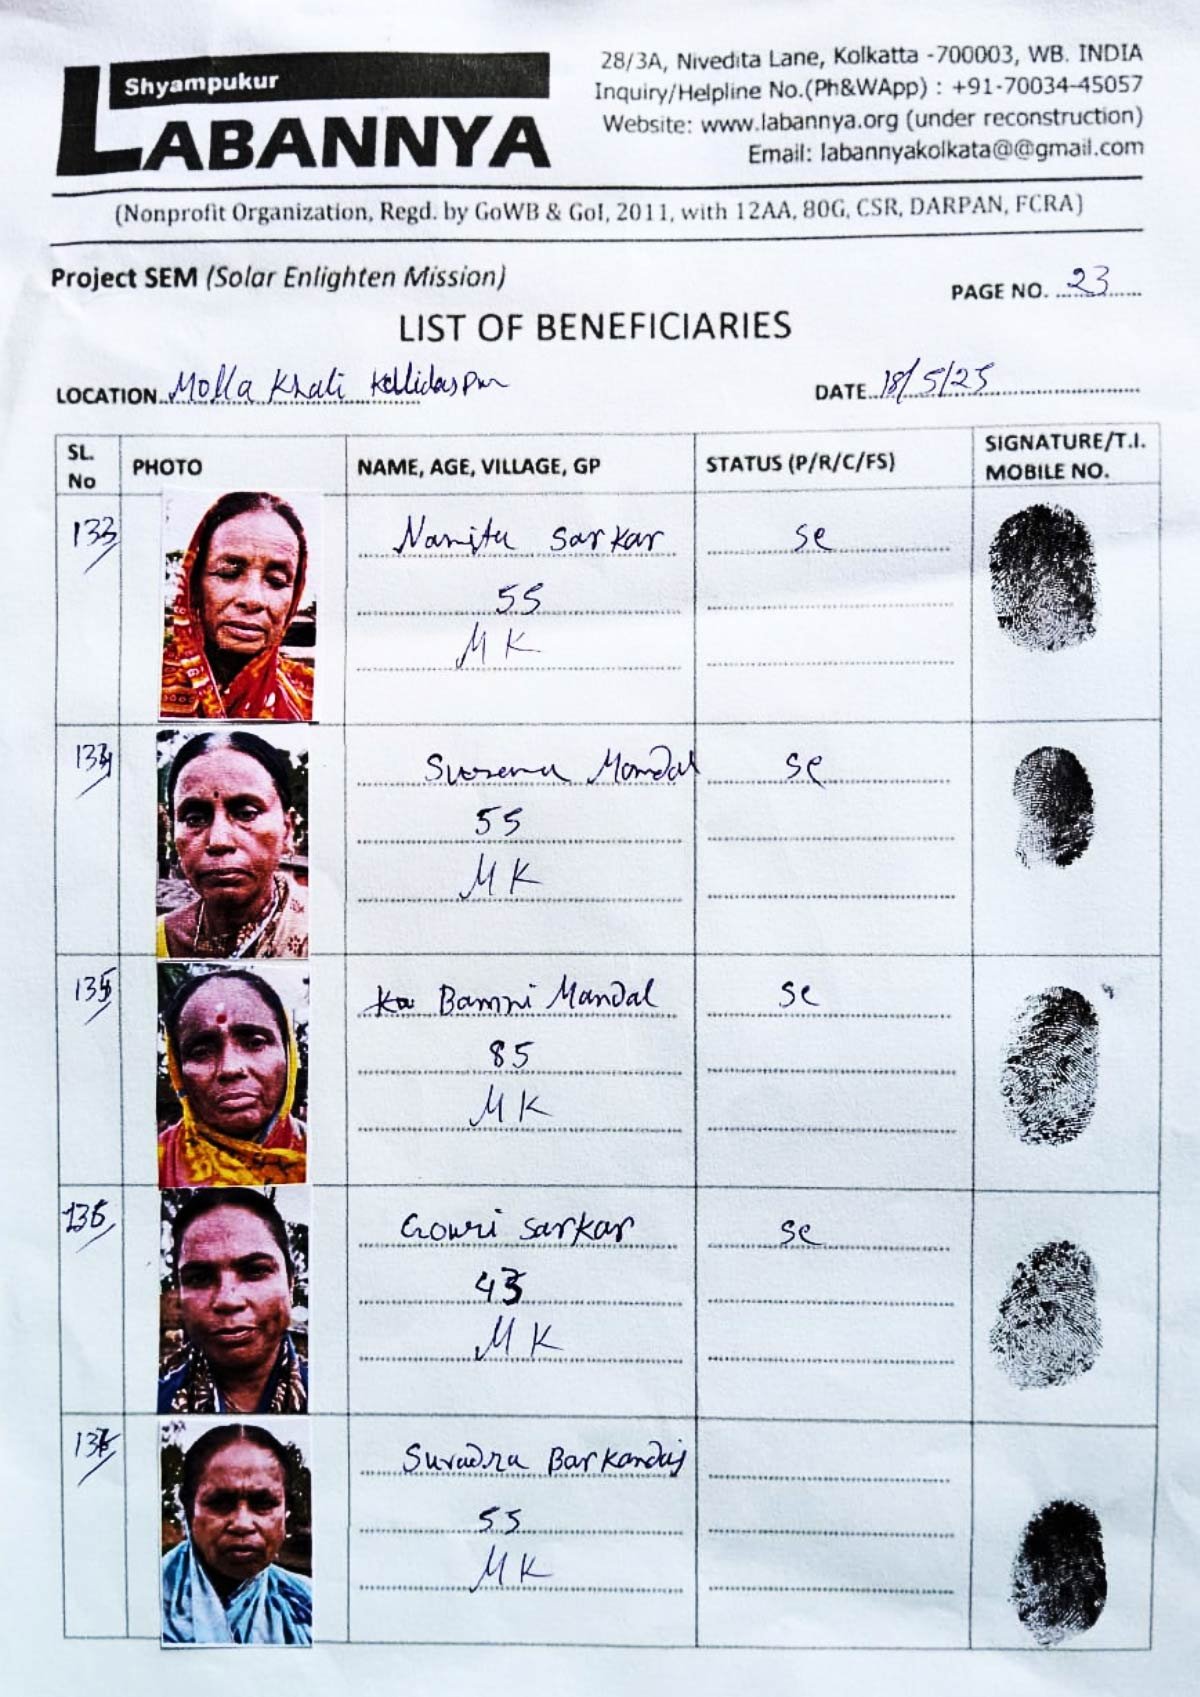 Shyampukur
LABANNYA
28/3A, Nivedita Lane, Kolkatta -700003, WB. INDIA
Inquiry/Helpline No.(Ph&WApp) : +91-70034-45057
Website: www.labannya.org (under reconstruction)
Email: labannyakolkata@@gmail.com
(Nonprofit Organization, Regd. by GoWB & GoI, 2011, with 12AA, 80G, CSR, DARPAN, FCRA)
Project SEM (Solar Enlighten Mission)
PAGE NO. 23
LIST OF BENEFICIARIES
LOCATION Molla Khali Kallidaspur
DATE 18/5/25
SL. No PHOTO NAME, AGE, VILLAGE, GP STATUS (P/R/C/FS) SIGNATURE/T.I. MOBILE NO.
133 Namita Sarkar sc
55
MK
134 Mondal sc
55
MK
135 Bamni Mandal sc
85
MK
136 Gowri Sarkar sc
43
MK
Suvadra Barkandaj
55
MK